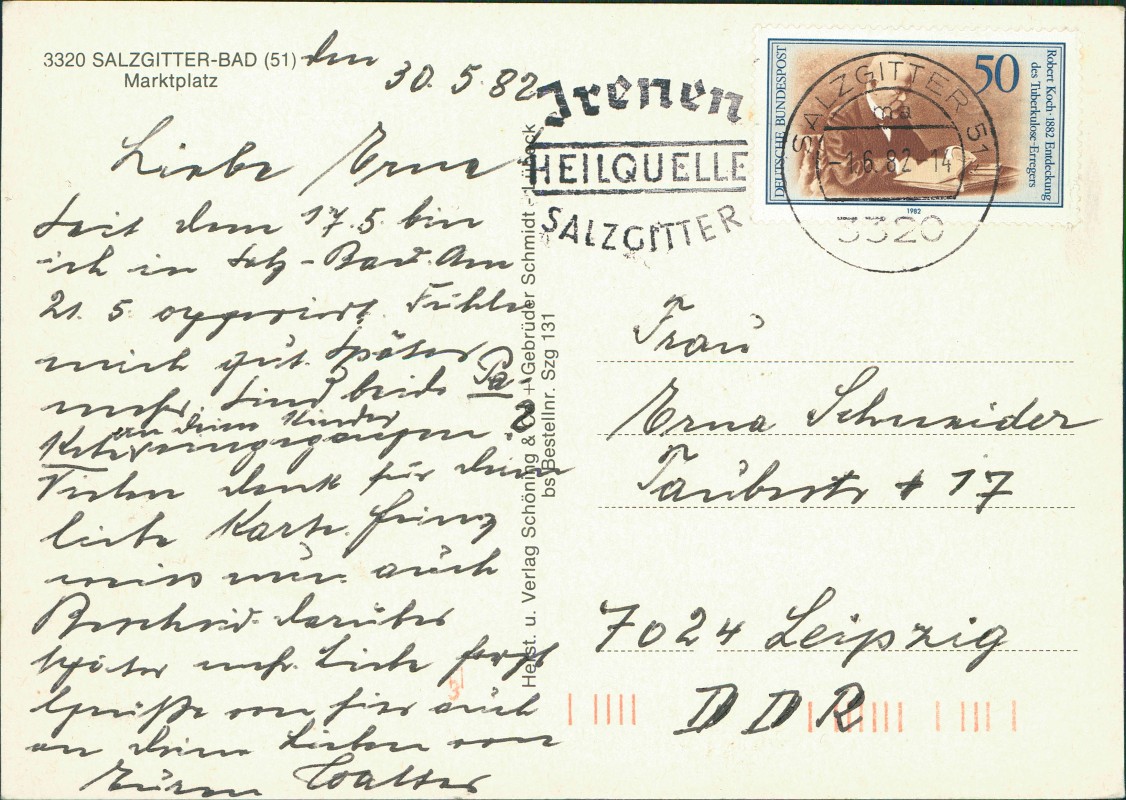 3320 SALZGITTER-BAD (51)
Marktplatz
den
30.5.82
Liebe Erna
Seit dem 17.5. bin
ich in Salz-Bad. Am
21.5 opperiert. Fühle
mich gut. Später
mehr. Sind beide Pa-
an deine Kinder
Kete
Vielen dank für deine
liebe Karte.
nun auch
Bescheid darüber
später mehr. Liebe
Grüße von hier auch
an deine Lieben von
Euren Walter
Herst. u. Verlag Schöning & Co + Gebrüder Schmidt - Lübeck
bs Bestellnr. Szg 131
HEILQUELLE
SALZGITTER
SALZGITTER 51
ma
-1.6.82-14
3320
DEUTSCHE BUNDESPOST
50
Robert Koch·1882 Entdeckung
des Tuberkulose-Erregers
1982
Frau
Erna Schneider
Täubestr 17
7024 Leipzig
DDR